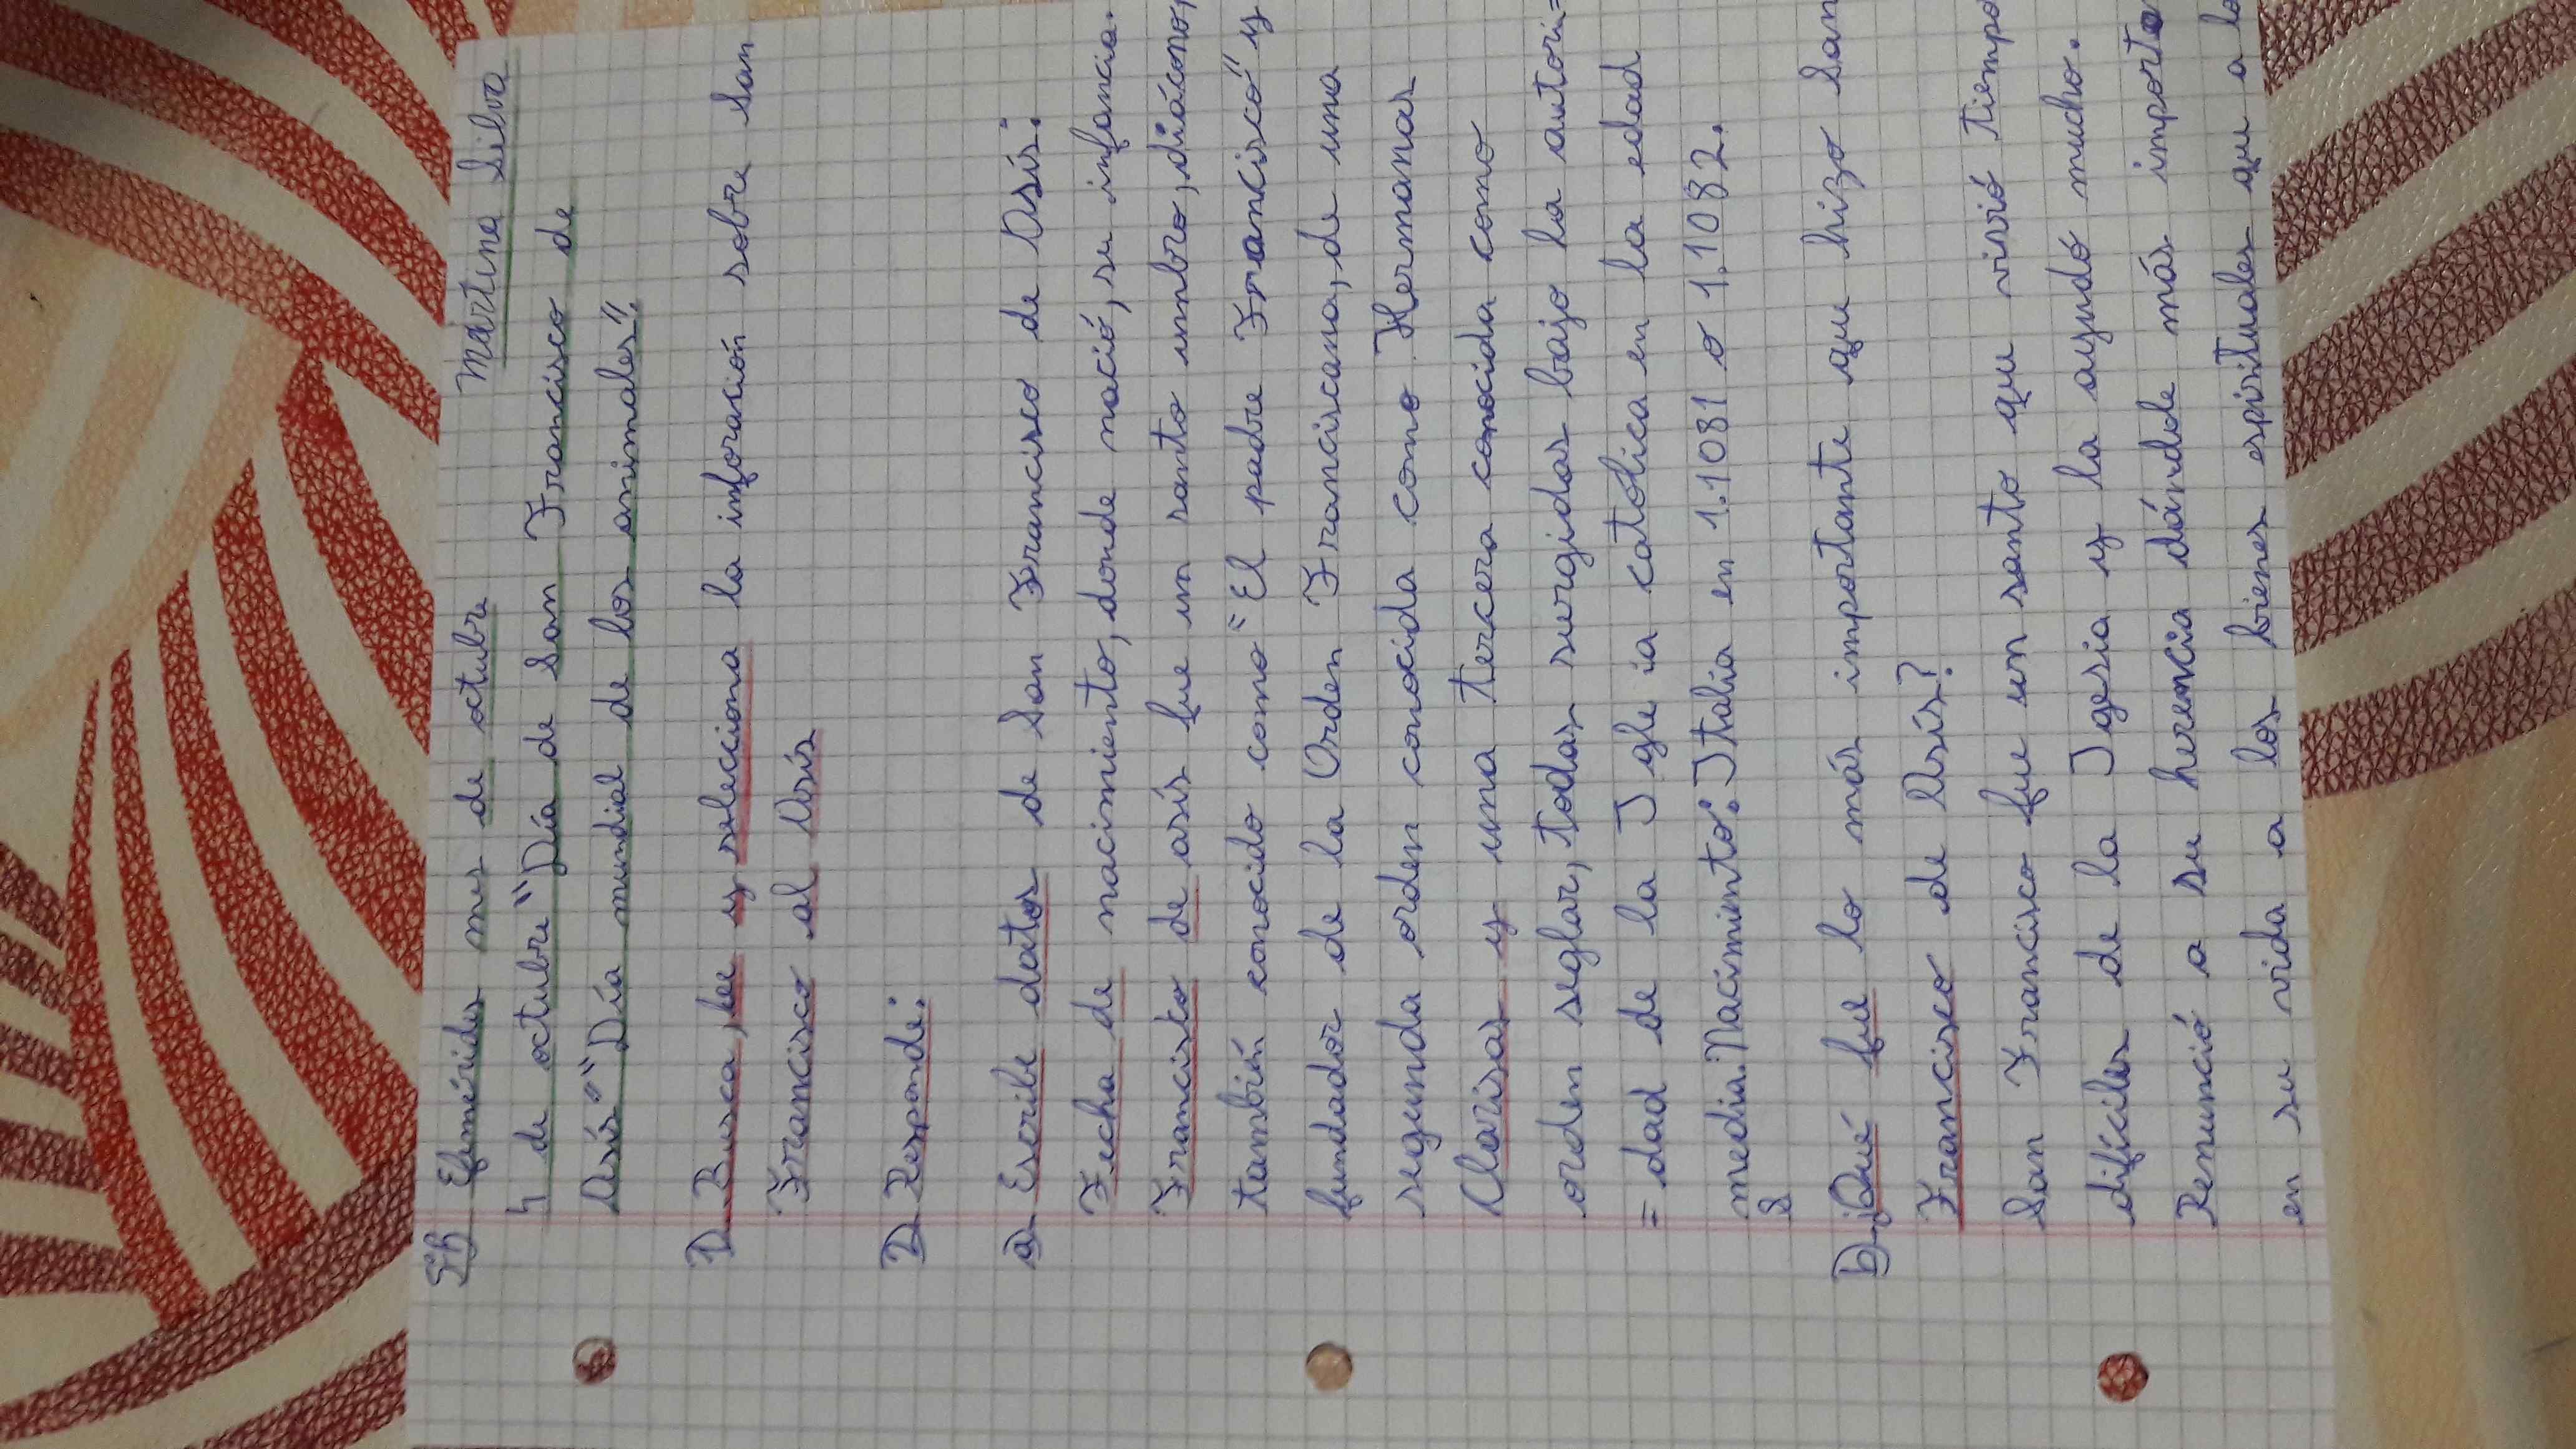 Efemérides mes de octubre Martina Silva
4 de octubre "Día de San Francisco de
Asís" "Día mundial de los animales".
1) Busca, lee y selecciona la inforación sobre San
Francisco al Asís
2) Responde:
a) Escribe datos de San Francisco de Asís:
Fecha de nacimiento, donde nació, su infancia.
Francisto de asís fue un santo umbro, diácono,
también conocido como "El padre Francisco" y
fundador de la Orden Franciscana, de una
segunda orden conocida como Hermanas
Clarisas y una tercera conocida como
orden seglar, todas surgidas bajo la autori=
=dad de la Igle ia católica en la edad
media. Nacimiento: Italia en 1.1081 o 1.1082.
s
b) ¿Qué fue lo más importante que hizo San
Francisco de Asís?
San Francisco fue un santo que vivió tiempo
difíciles de la Igesia y la ayudó mucho.
Renunció a su herencia dándole más importa
en su vida a los bienes espirituales que a lo